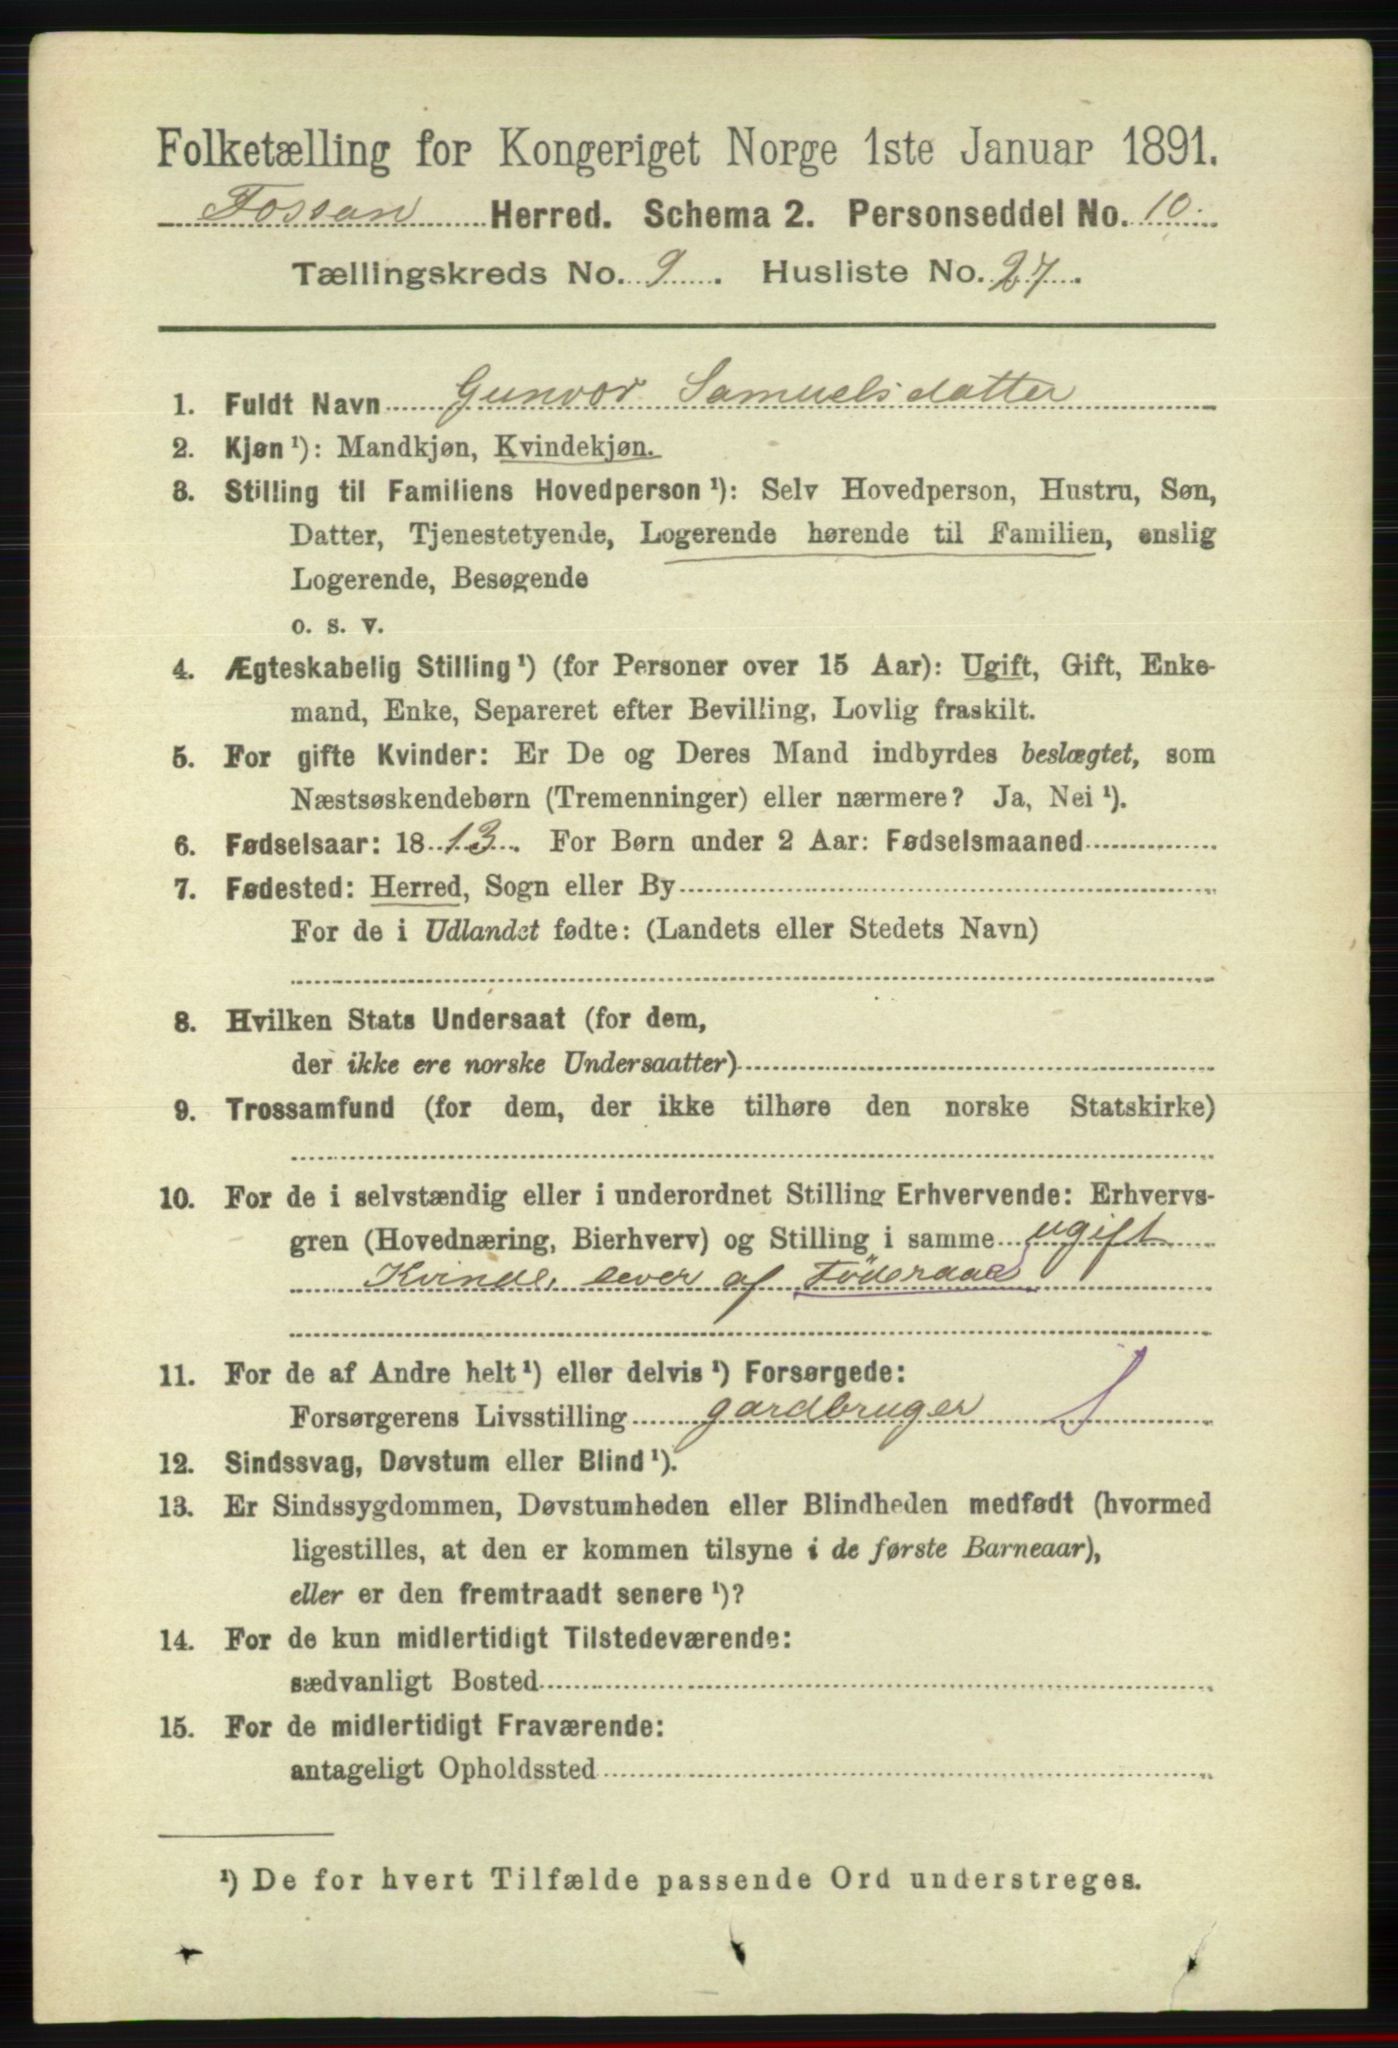 Folketælling for Kongeriget Norge 1ste Januar 1891.
Fossan Herred. Schema 2. Personseddel No. 10
Tællingskreds No. 9. Husliste No. 27.
1. Fuldt Navn Gunvor Samuelsdatter
2. Kjøn ¹): Mandkjøn, Kvindekjøn.
3. Stilling til Familiens Hovedperson ¹): Selv Hovedperson, Hustru, Søn,
Datter, Tjenestetyende, Logerende hørende til Familien, enslig
Logerende, Besøgende
o. s. v.
4. Ægteskabelig Stilling ¹) (for Personer over 15 Aar): Ugift, Gift, Enke-
mand, Enke, Separeret efter Bevilling, Lovlig fraskilt.
5. For gifte Kvinder: Er De og Deres Mand indbyrdes beslægtet, som
Næstsøskendebørn (Tremenninger) eller nærmere? Ja, Nei ¹).
6. Fødselsaar: 1813. For Børn under 2 Aar: Fødselsmaaned
7. Fødested: Herred, Sogn eller By
For de i Udlandet fødte: (Landets eller Stedets Navn)
8. Hvilken Stats Undersaat (for dem,
der ikke ere norske Undersaatter)
9. Trossamfund (for dem, der ikke tilhøre den norske Statskirke)
10. For de i selvstændig eller i underordnet Stilling Erhvervende: Erhvervs-
gren (Hovednæring, Bierhverv) og Stilling i samme ugift
Kvinde, lever af Föderaad
11. For de af Andre helt ¹) eller delvis ¹) Forsørgede:
Forsørgerens Livsstilling gardbruger
12. Sindssvag, Døvstum eller Blind ¹).
13. Er Sindssygdommen, Døvstumheden eller Blindheden medfødt (hvormed
ligestilles, at den er kommen tilsyne i de første Barneaar),
eller er den fremtraadt senere ¹)?
14. For de kun midlertidigt Tilstedeværende:
sædvanligt Bosted
15. For de midlertidigt Fraværende:
antageligt Opholdssted
¹) De for hvert Tilfælde passende Ord understreges.